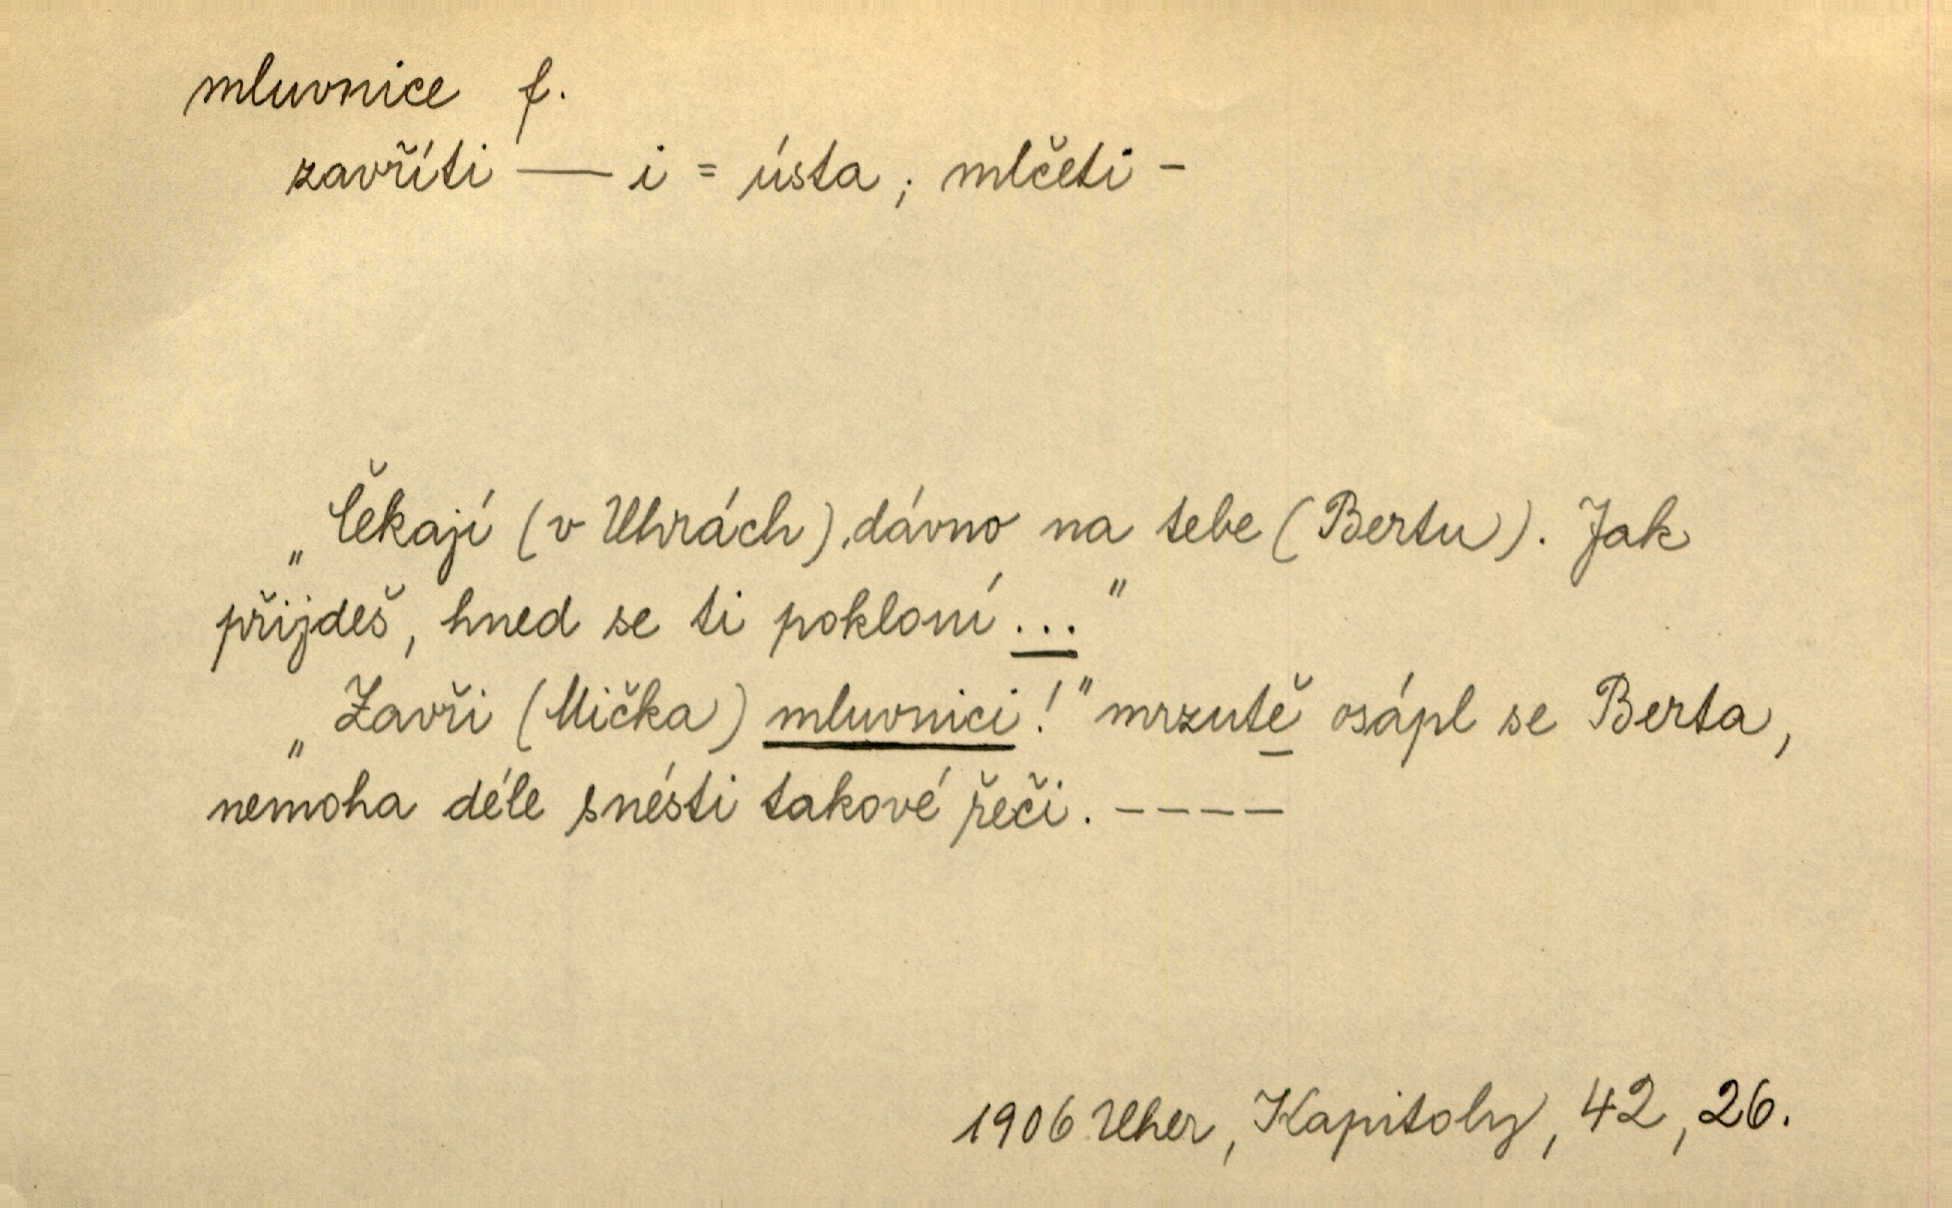 mluvnice f.
zavříti — i = ústa; mlčeti -
„Čekají (v Uhrách) dávno na tebe (Bertu). Jak
přijdeš, hned se ti pokloní ..."
„Zavři (Mička) mluvnici!" mrzutě osápl se Berta,
nemoha déle snésti takové řeči. ----
1906 Uher, Kapitoly, 42, 26.